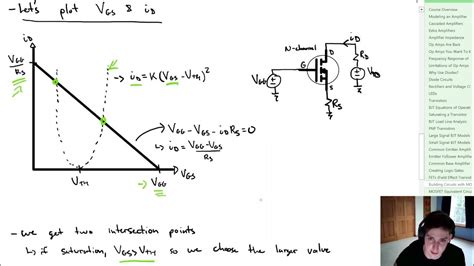 -Let's plot VGS & iD
iD
VGG
RS
→ iD = K(VGS - VTH)²
VGG - VGS - iDRS = 0
↳ iD = VGG - VGS
RS
VTH
→ VGG
VGS
N-channel
iD
RD
D
G
S
VGG
VDD
RS
- we get two intersection points
↳ if saturation, VGS > VTH so we choose the larger value
Course Overview
Modeling an Amplifier
Cascaded Amplifiers
Extra Amplifiers
Amplifier Impedance
Op Amps Want You to
Op Amps the Easy Way
Frequency Response of
Limitations of Op Amps
Ways to Use Op Amps
Diode Circuits
Rectifier and Voltage
LEDs
Transistors
Example of BJT Operation
Saturating a Transistor
BJT Load Line Analysis
PNP Transistors
Large Signal BJT Models
Small Signal BJT Models
Common Emitter Amplifier
Emitter Follower Amplifier
Common Base Amplifier
Creating Logic Gates
FETs (Field Effect Transist
Building Circuits with MO
MOSFET Equivalent Circu